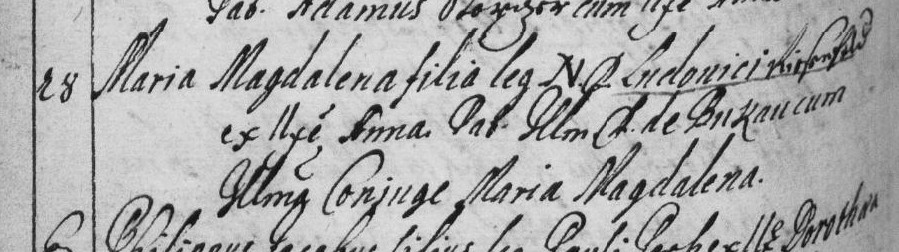 Pab. Adamus cum Uxe Anna
28 Maria Magdalena filia leg N. D. Ludovici
ex Uxe Anna. Pab. Illm D. de Bukau cum
Illma Conjuge Maria Magdalena.
Philippus Jacobus filius leg Pauli ex Uxe Dorothea